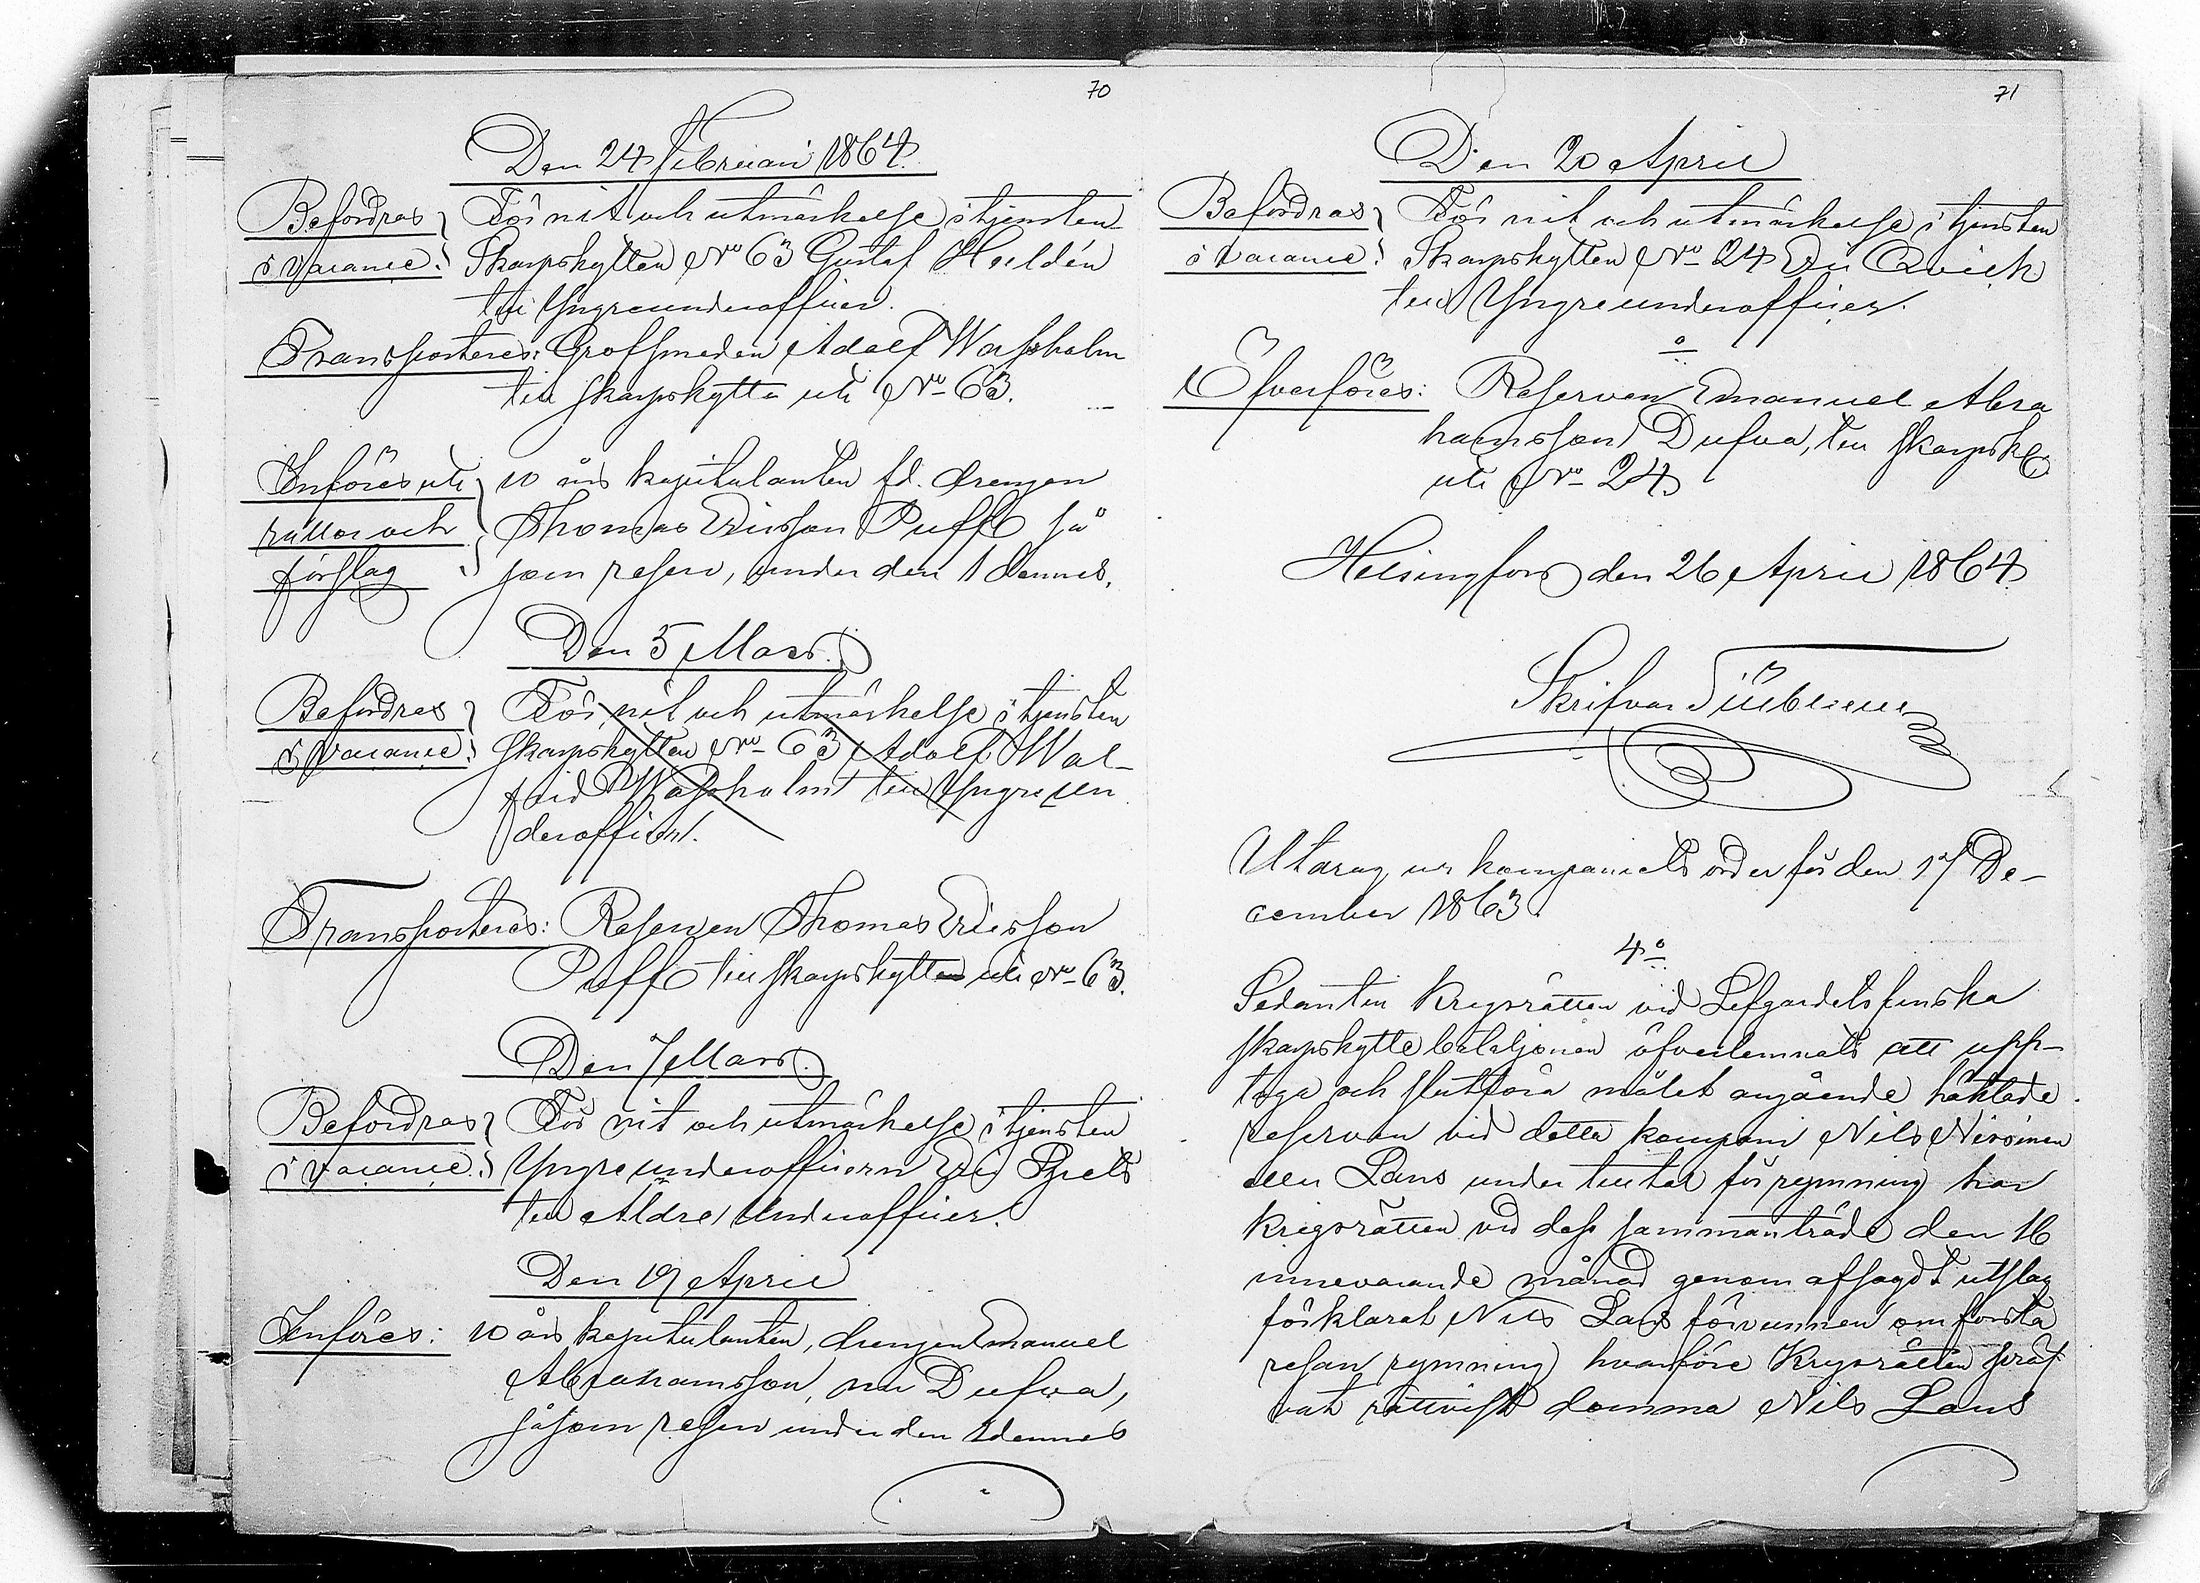 70
Den 24 Februari 1864.
Befordras
i vacance:
För nit och utmärkelse i tjensten
Skarpskytten No 63 Gustaf Heldén
till Yngre underofficer.
Transporteras: Grofsmeden Adolf Wassholm
till skarpskytte uti No 63.
Införes uti
rullor och
förslag
10 års kapitulanten fd. drengen
Thomas Ericsson Puff så
som reserv, under den 1 dennes.
Den 5 Mars.
Befordras
i vacance:
För nit och utmärkelse i tjensten
skarpskytten No 63 Adolf Wal-
frid Wassholm till Yngre un
derofficer.
Transporteras: Reserven Thomas Ericsson
Puff till skarpskytten uti No 63.
Den 7 Mars.
Befordras
i vacance.
För nit och utmärkelse i tjensten
Yngre underofficern Eric
till Äldre Underofficer.
Den 19 April
Införes: 10 års kapitulanten, drengen Emanuel
Abrahamsson, nu Dufva,
såsom reserv under den 1 dennes
71
Den 20 April
Befordras
i vacance:
För nit och utmärkelse i tjensten
Skarpskytten No 24 Eric Qvick
till Yngre underofficer.
Öfverföres: Reserven Emanuel Abra
hamsson Dufva, till skarpsk
uti No 24
Helsingfors den 26 April 1864
Skrifvar
Utdrag ur kompaniets order för den 17 De-
cember 1863.
4o
Sedan till Krigsrätten vid Lifgardets finska
skarpskytte bataljonen öfverlemnats att upp-
taga och slutföra målet angående häktade
reserven vid detta kompani Nils Nissinen
eller Lans under tilltal för rymning har
krigsrätten vid dess sammanträde den 16
innevarande månad genom afsagdt utslag
förklarat Nils Lans förvunnen om första
resan rymning hvarföre Krigsrätten pröf
vat rättvist domma Nils Lans